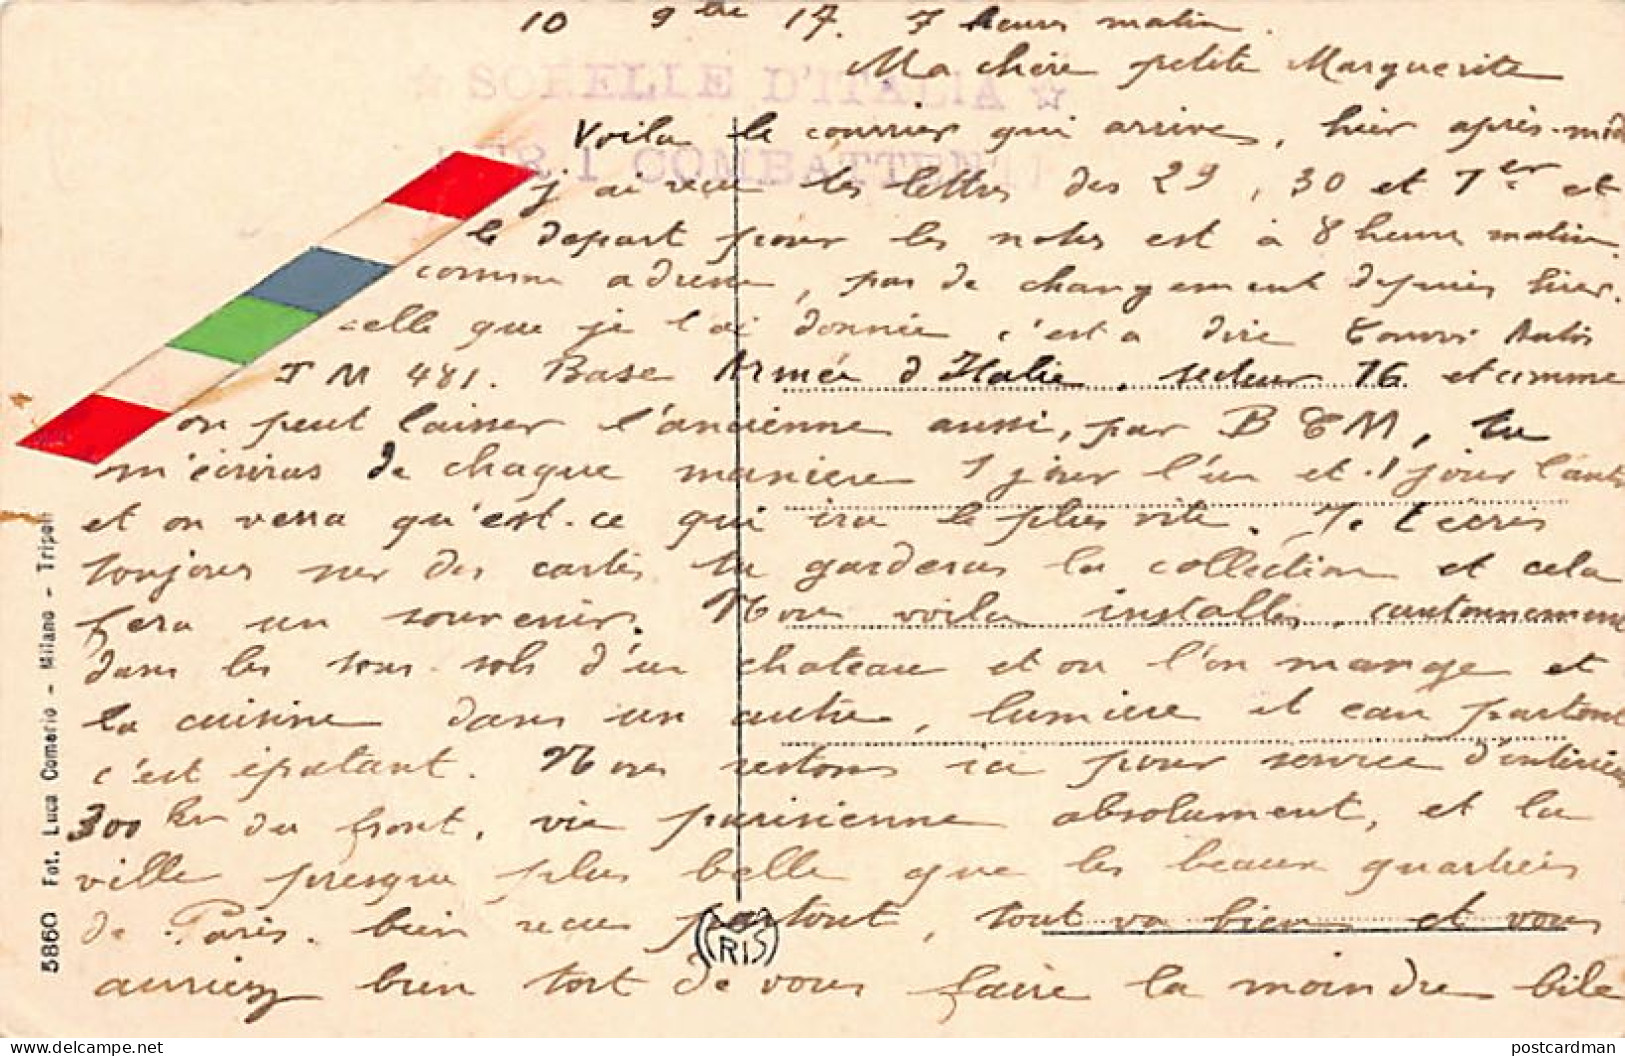 10 9bre 17. 7 heures matin.
Ma chère petite Marguerite
☆ SORELLE D'ITALIA ☆
PER I COMBATTENTI
Voila le courrier qui arrive, hier après-midi
j'ai recu les lettres des 29, 30 et 1er et
le depart pour les notres est à 8 heures matin
comme adresse, pas de changement depuis hier.
celle que je t'ai donnée c'est a dire Convoi Autos
T M 481. Base Armée d'Italie, secteur 76 et comme
on peut laisser l'ancienne aussi, par B C M, tu
m'écriras de chaque maniere 1 jour l'un et 1 jour l'autre
et on verra qu'est-ce qui ira le plus vite. Je t'ecris
toujours sur des cartes tu garderas la collection et cela
fera un souvenir. Nous voila installés, cantonnement
dans les sous-sols d'un chateau et ou l'on mange et
la cuisine dans un autre, lumiere et eau partout
c'est épatant. Nous restons ici pour service d'intérieur
300 km du front, vie parisienne absolument, et la
ville presque plus belle que les beaux quartiers
de Paris. bien recus partout, tout va bien et vous
auriez bien tort de vous faire la moindre bile
5860 Fot. Luca Comerio - Milano - Tripoli
RIS
delcampe.net
postcardman